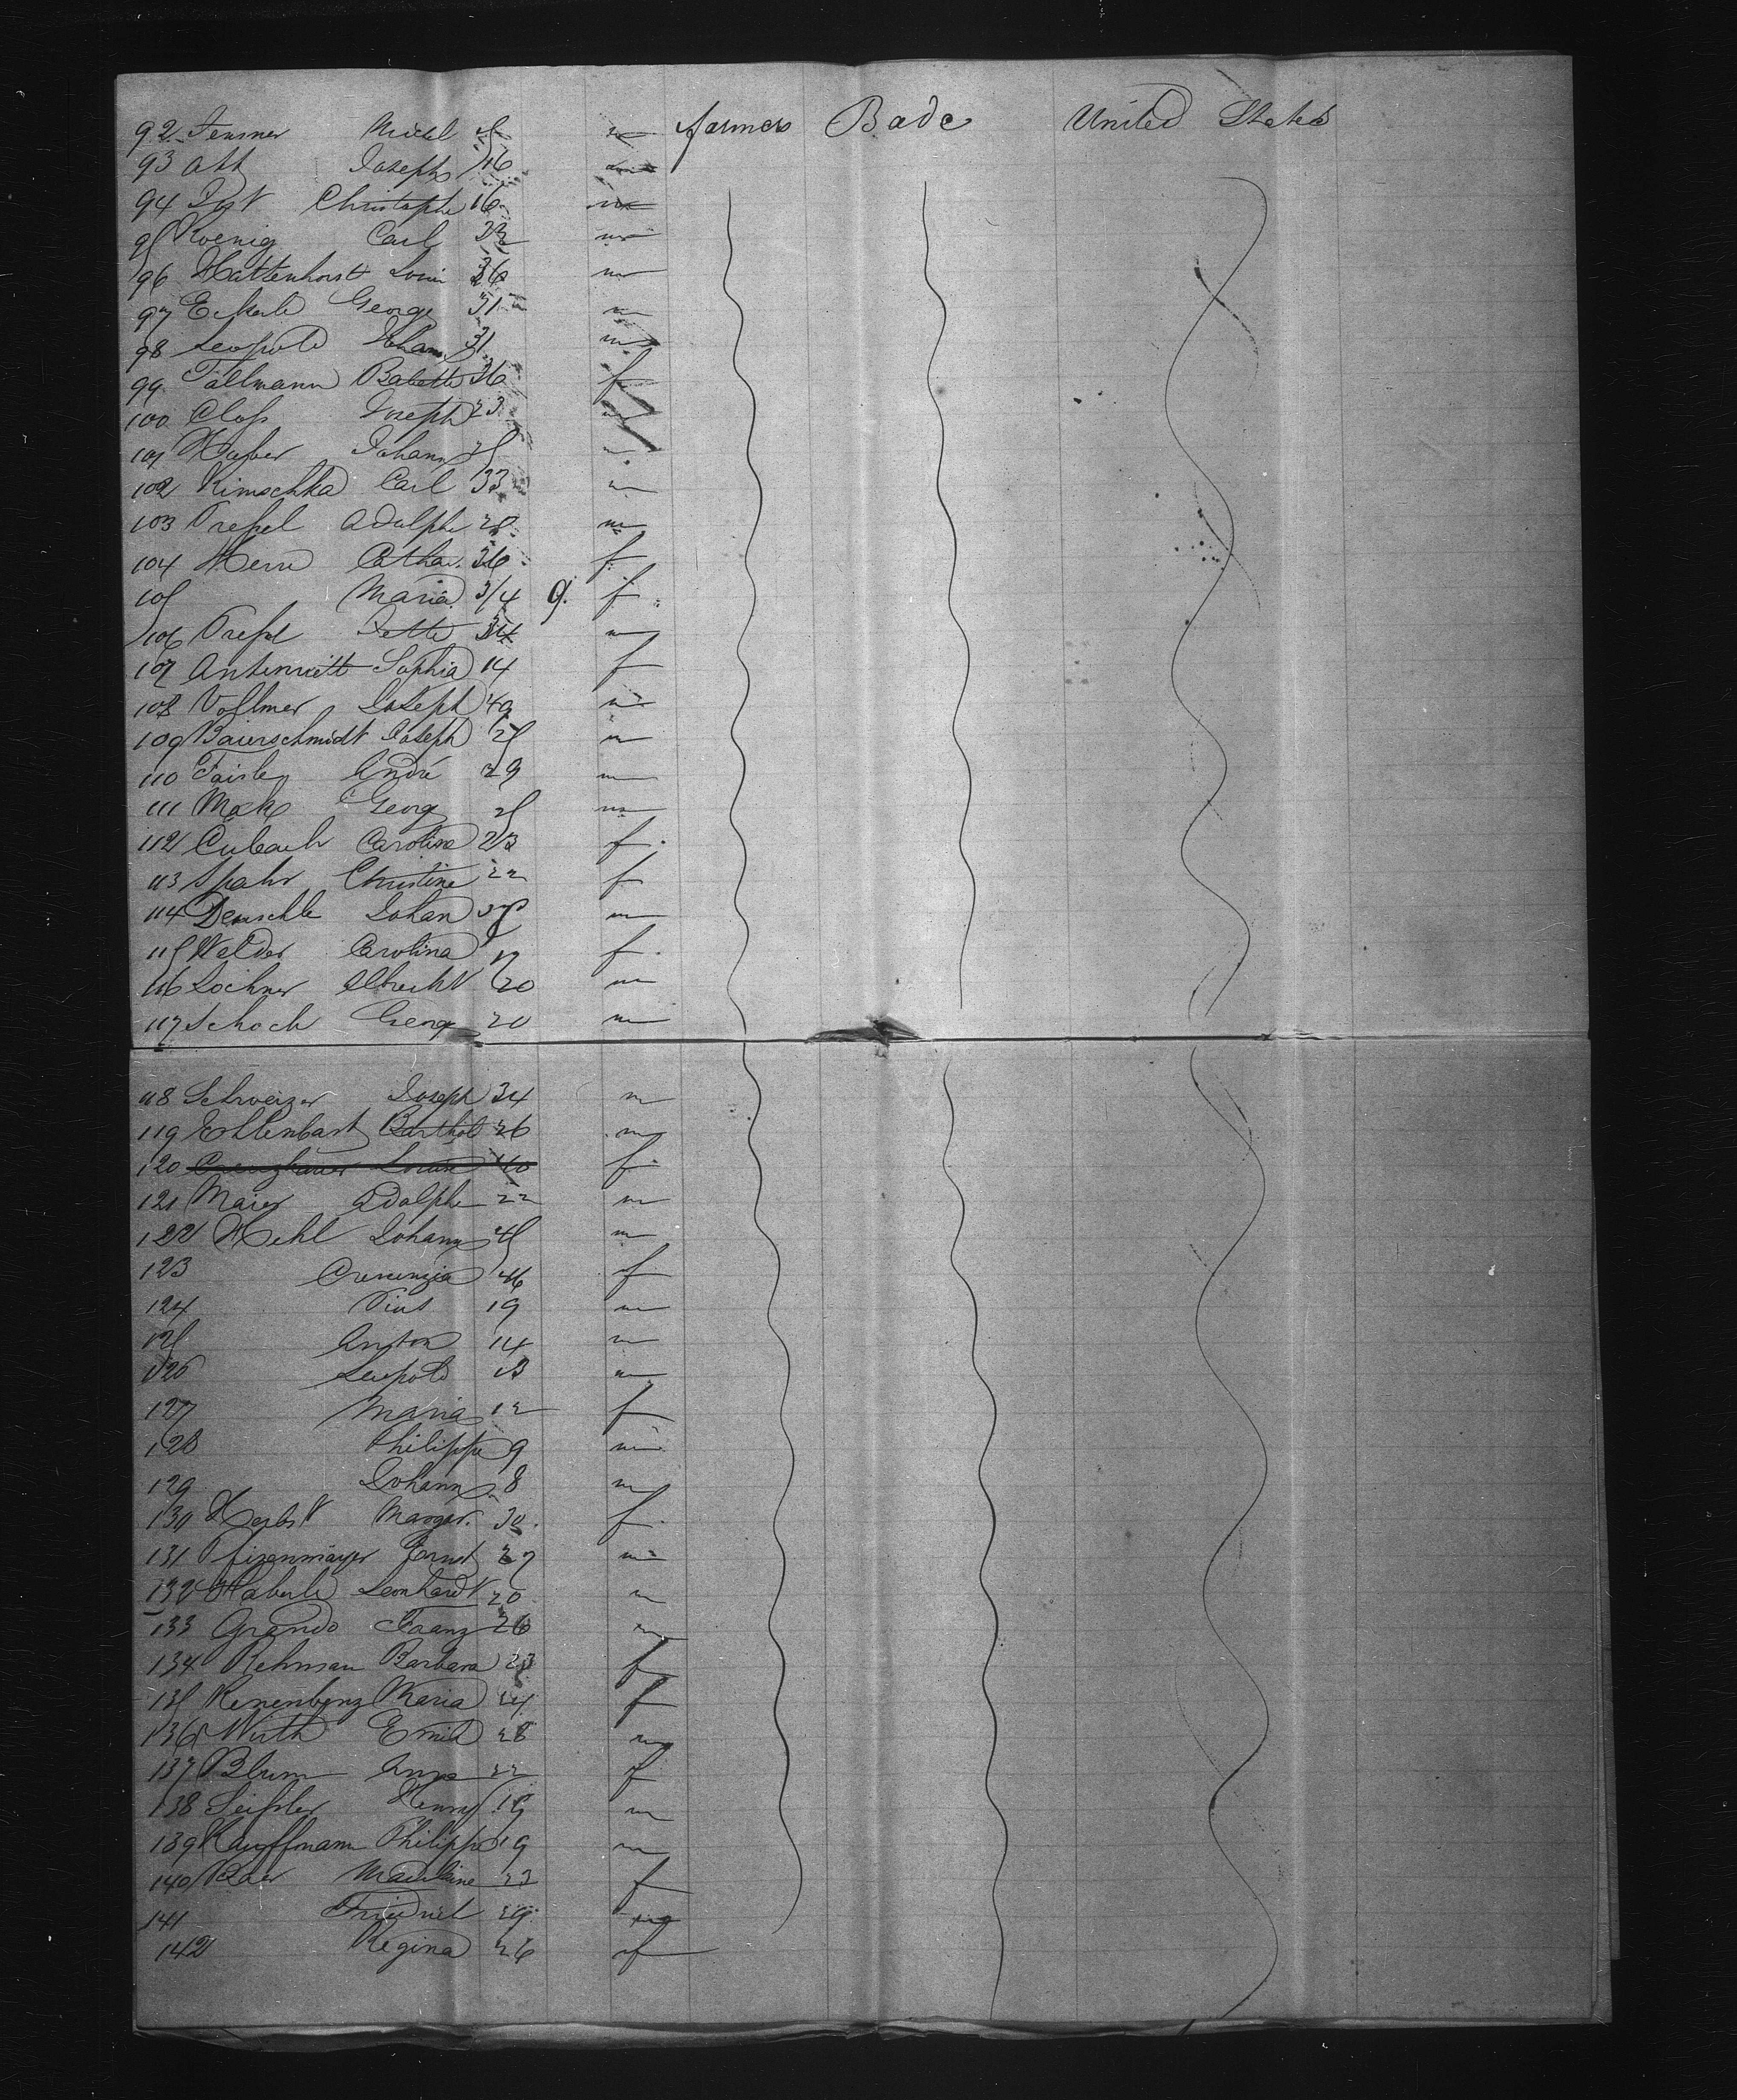 92 Michel m farmers Bade United States
93 Ott Joseph 16 m
94 Christophe 16 m
95 Koenig Carl 32 m
96 Hattenhorst Louis 36 m
97 Eckerle George 31 m
98 Leopold 31 m
99 Tallmann Babette 36 f
100 Closs Joseph 23 m
101 Huber Johann 25 m
102 Kimschka Carl 33 m
103 Adolphe m
104 Herre Cathar. 36 f
105 Maria 3/4 9. f
106 34 m
107 Antenriett Sophia 14 f
108 Vollmer Joseph m
109 Baierschmidt Joseph 25 m
110 Faisle André 29 m
111 Georg 25 m
112 Carolina 23 f
113 Spahr Christine 22 f
114 Deuschle Johan m
115 Walder Carolina f
116 Lochner Albrecht 20 m
117 Schoch Georg 20 m
118 Schweizer Joseph 34 m
119 Ehlenbast Barthol 26 m
120 Louise 40 f
121 Maier Adolphe 22 m
122 Hehl Johann 45 m
123 Crenenzia 46 f
124 Pius 19 m
125 Anton 14 m
126 Leopold 13 m
127 Maria 12 f
128 Philippe 9 m
129 Johann 8 m
130 Herbst Margar. 30 f
131 Pfizenmayer Ernst 27 m
132 Haberle Leonhardt 20 m
133 Grando Franz 26 m
134 Rehman Barbara 23 f
135 Renenbenz Maria 24 f
136 Wirth Emil 28 m
137 Blum Anna 22 f
138 Seissler Henry 19 m
139 Kauffmann Philippe 19 m
140 Baer Madelaine 23 f
141 Friedriel 29 m
142 Regina 26 f